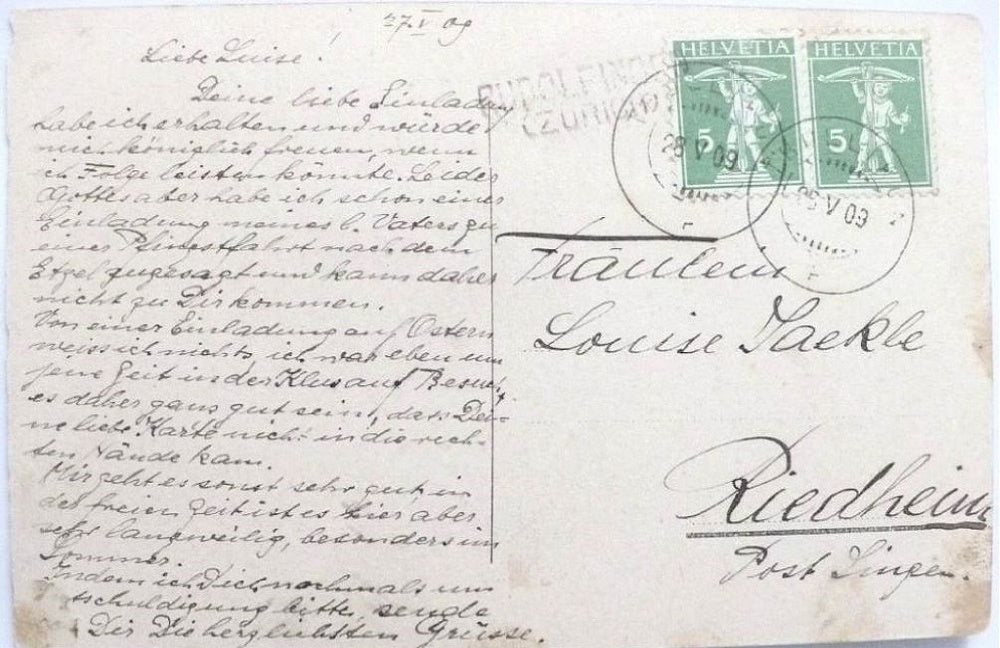 27.V 09
Liebe Luise!
Deine liebe Einladung
habe ich erhalten und würde
mich königlich freuen, wenn
ich Folge leisten könnte. Leider
Gottes aber habe ich schon einer
Einladung meines l. Vaters zu
einer Pfingstfahrt nach dem
Etzel zugesagt und kann daher
nicht zu Dir kommen.
Von einer Einladung auf Ostern
weiss ich nichts, ich war eben um
jene Zeit in der Klus auf Besuch,
es daher ganz gut sein, dass Dei-
ne liebe Karte nicht in die rech-
ten Hände kam.
Mir geht es sonst sehr gut, in
der freien Zeit ist es hier aber
sehr langweilig, besonders im
Sommer.
Indem ich Dich nochmals um
tschuldigung bitte, sende
Dir Die herzlichsten Grüsse.
RUDOLFINGEN
(ZÜRICH)
HELVETIA
5
HELVETIA
5
28 V 09
V 09
Fräulein
Louise Jaekle
Riedheim
Post Singen.